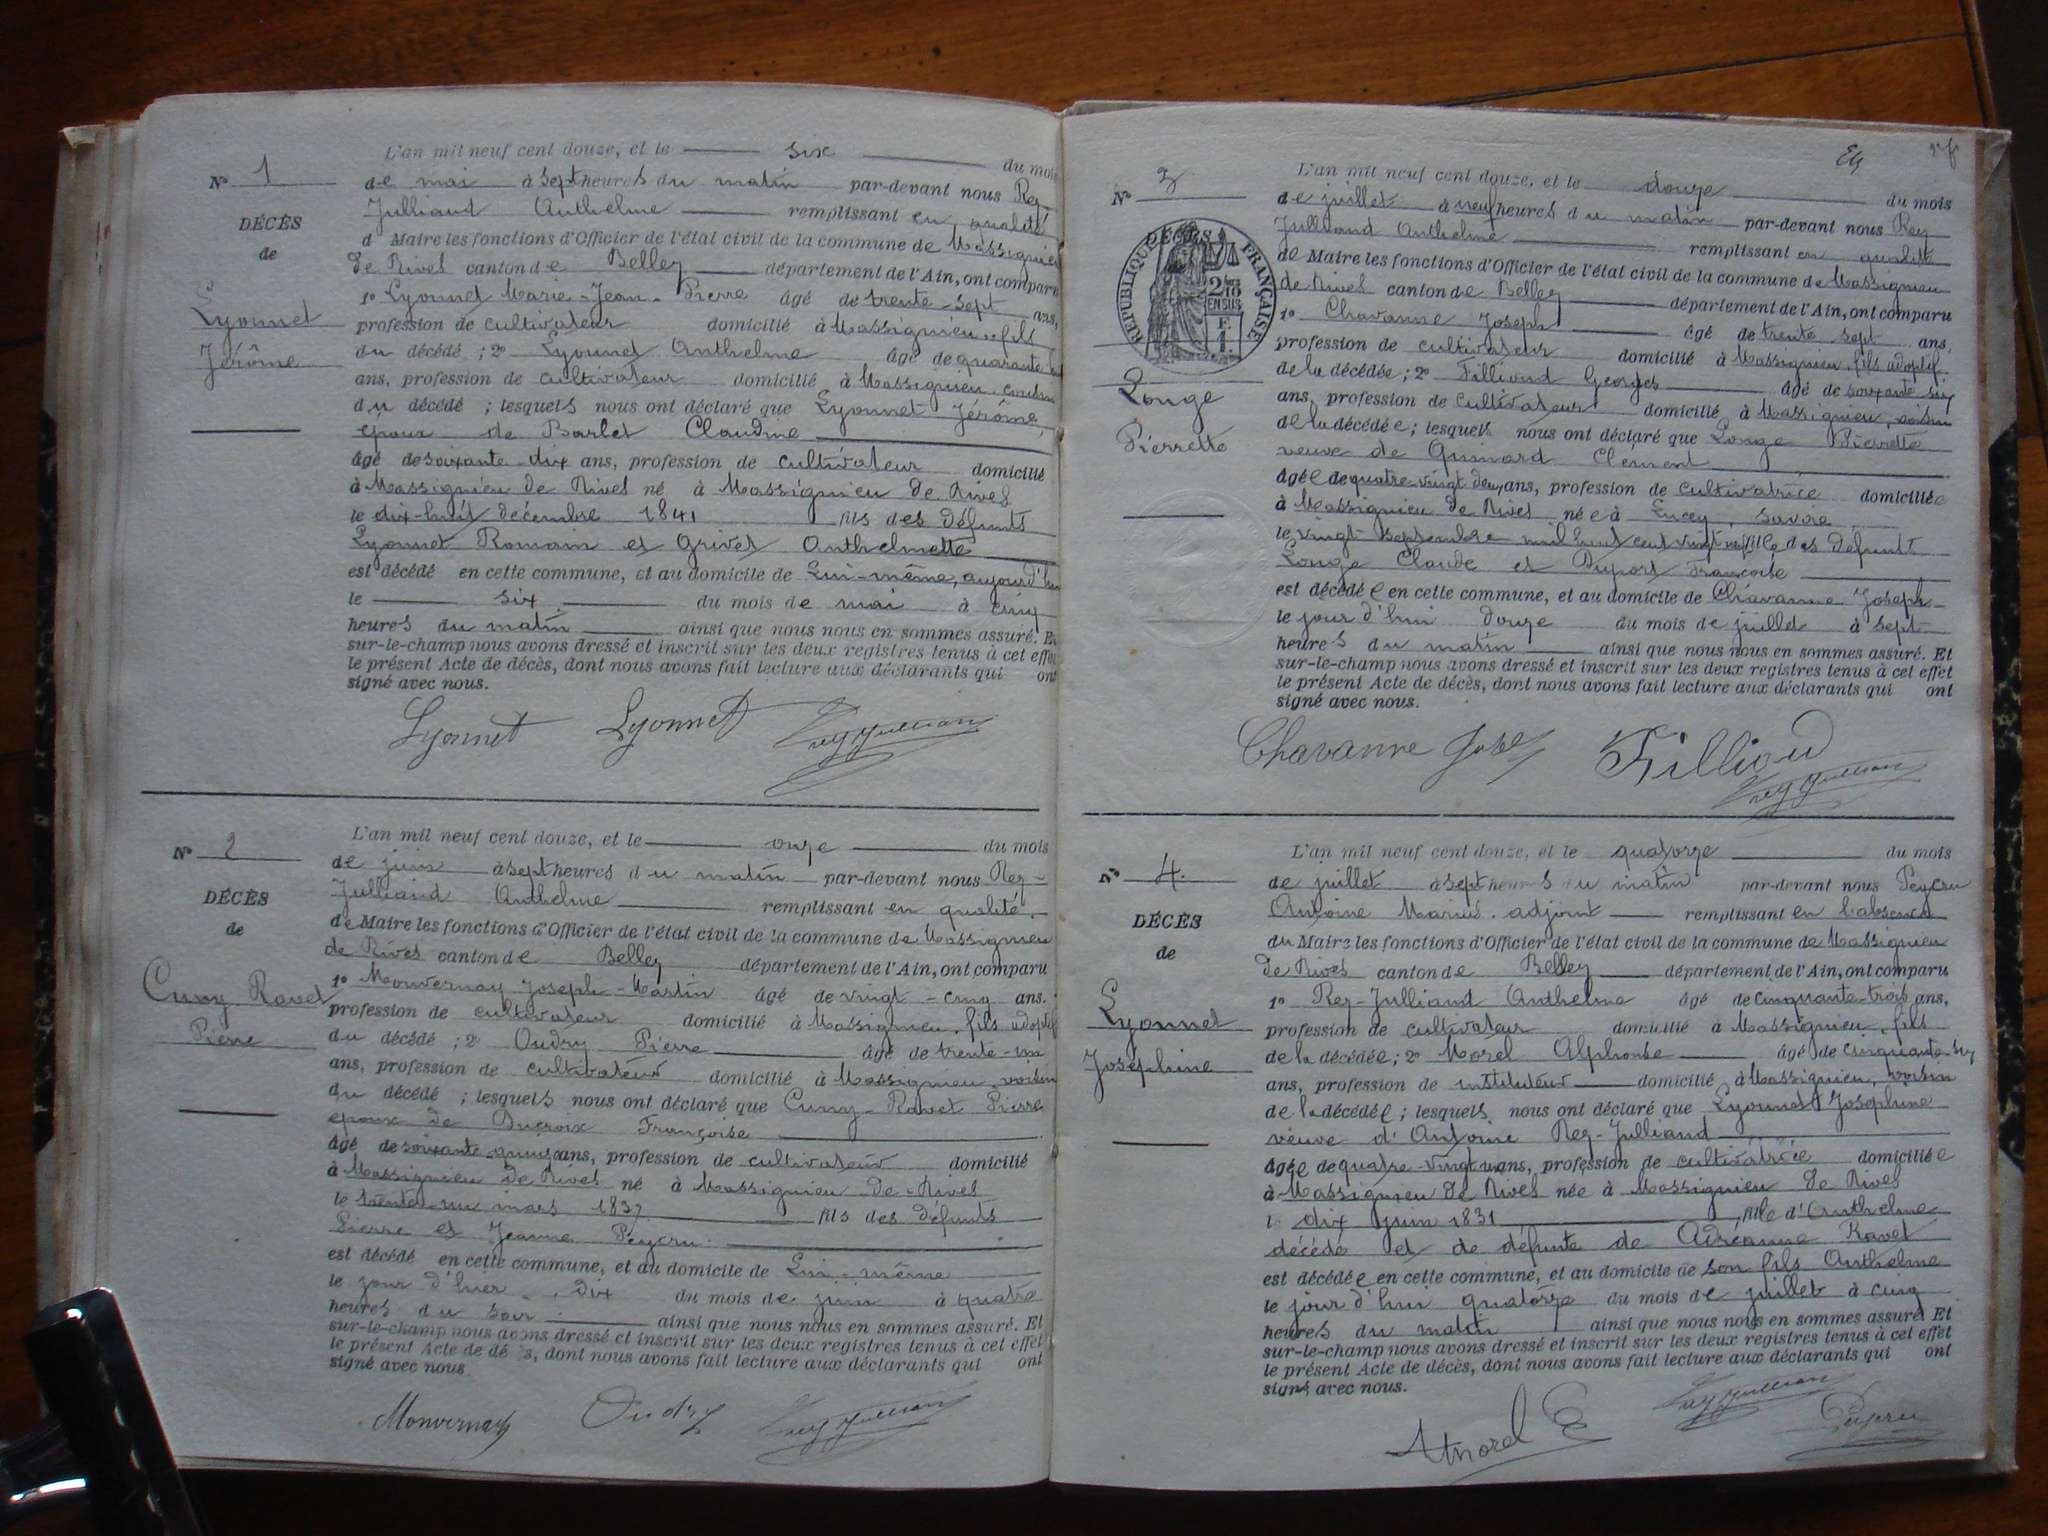 N° 1
DÉCÈS
de
Lyonnet
Jérôme
L'an mil neuf cent douze, et le six du mois
de mai à sept heures du matin par-devant nous Rey-
Julliand Anthelme remplissant en qualité
d Maire les fonctions d'Officier de l'état civil de la commune de Massignieu
de Rives canton de Belley département de l'Ain, ont comparu
1° Lyonnet Marie-Jean-Pierre âgé de trente-sept ans,
profession de cultivateur domicilié à Massignieu, fils
du décédé ; 2° Lyonnet Anthelme âgé de quarante
ans, profession de cultivateur domicilié à Massignieu, cousin
du décédé ; lesquels nous ont déclaré que Lyonnet Jérôme,
époux de Barlet Claudine
âgé de soixante-dix ans, profession de cultivateur domicilié
à Massignieu de Rives né à Massignieu de Rives
le dix-huit décembre 1841 fils des défunts
Lyonnet Romain et Grivet Anthelmette
est décédé en cette commune, et au domicile de Lui-même, aujourd'hui
le six du mois de mai à cinq
heures du matin ainsi que nous nous en sommes assuré. Et
sur-le-champ nous avons dressé et inscrit sur les deux registres tenus à cet effet
le présent Acte de décès, dont nous avons fait lecture aux déclarants qui ont
signé avec nous.
Lyonnet Lyonnet Rey Julliand
N° 2
DÉCÈS
de
Cuny-Ravet
Pierre
L'an mil neuf cent douze, et le onze du mois
de juin à sept heures du matin par-devant nous Rey-
Julliand Anthelme remplissant en qualité
de Maire les fonctions d'Officier de l'état civil de la commune de Massignieu
de Rives canton de Belley département de l'Ain, ont comparu
1° Monvernay Joseph-Martin âgé de vingt-cinq ans.
profession de cultivateur domicilié à Massignieu, fils adoptif
du décédé ; 2° Oudry Pierre âgé de trente-un
ans, profession de cultivateur domicilié à Massignieu, voisin
du décédé ; lesquels nous ont déclaré que Cuny-Ravet Pierre
époux de Ducroix Françoise
âgé de soixante-quinze ans, profession de cultivateur domicilié
à Massignieu de Rives né à Massignieu-de-Rives
le trente-un mars 1837 fils des défunts
Pierre et Jeanne Peycru
est décédé en cette commune, et au domicile de Lui-même
le jour d'hier, dix du mois de juin à quatre
heures du soir ainsi que nous nous en sommes assuré. Et
sur-le-champ nous avons dressé et inscrit sur les deux registres tenus à cet effet
le présent Acte de décès, dont nous avons fait lecture aux déclarants qui ont
signé avec nous.
Monvernay Oudry Rey Julliand
N° 3
DÉCÈS
RÉPUBLIQUE FRANÇAISE
2/10
EN SUS
Longe
Pierrette
L'an mil neuf cent douze, et le douze du mois
de juillet à neuf heures du matin par-devant nous Rey
Julliand Anthelme remplissant en qualité
de Maire les fonctions d'Officier de l'état civil de la commune de Massignieu
de Rives canton de Belley département de l'Ain, ont comparu
1° Chavanne Joseph âgé de trente-sept ans,
profession de cultivateur domicilié à Massignieu, fils adoptif
de la décédée ; 2° Fillioud Georges âgé de soixante six
ans, profession de cultivateur domicilié à Massignieu, voisin
de la décédée ; lesquels nous ont déclaré que Longe Pierrette
veuve de Clément
âgée de quatre-vingt deux ans, profession de cultivatrice domiciliée
à Massignieu de Rives née à Lucey, Savoie
le vingt septembre mil huit cent vingt neuf fille des défunts
Longe Claude et Duport Françoise
est décédée en cette commune, et au domicile de Chavanne Joseph
le jour d'hui douze du mois de juillet à sept
heures du matin ainsi que nous nous en sommes assuré. Et
sur-le-champ nous avons dressé et inscrit sur les deux registres tenus à cet effet
le présent Acte de décès, dont nous avons fait lecture aux déclarants qui ont
signé avec nous.
Chavanne Filliou Rey Julliand
N° 4.
DÉCÈS
de
Lyonnet
Joséphine
L'an mil neuf cent douze, et le quatorze du mois
de juillet à sept heures du matin par-devant nous Peycru
Antoine Marius adjoint remplissant en l'absence
du Maire les fonctions d'Officier de l'état civil de la commune de Massignieu
de Rives canton de Belley département de l'Ain, ont comparu
1° Rey-Julliand Anthelme âgé de cinquante-trois ans,
profession de cultivateur domicilié à Massignieu, fils
de la décédée ; 2° Morel Alphonse âgé de cinquante
ans, profession de instituteur domicilié à Massignieu, voisin
de la décédée ; lesquels nous ont déclaré que Lyonnet Joséphine
veuve d'Antoine Rey-Julliand
âgée de quatre-vingt un ans, profession de cultivatrice domiciliée
à Massignieu de Rives née à Massignieu de Rives
le dix juin 1831 fille d'Anthelme
décédé et de défunte de Adrianne Ravet
est décédée en cette commune, et au domicile de son fils Anthelme
le jour d'hui quatorze du mois de juillet à cinq
heures du matin ainsi que nous nous en sommes assuré. Et
sur-le-champ nous avons dressé et inscrit sur les deux registres tenus à cet effet
le présent Acte de décès, dont nous avons fait lecture aux déclarants qui ont
signé avec nous.
AMorel Rey Julliand Peycru